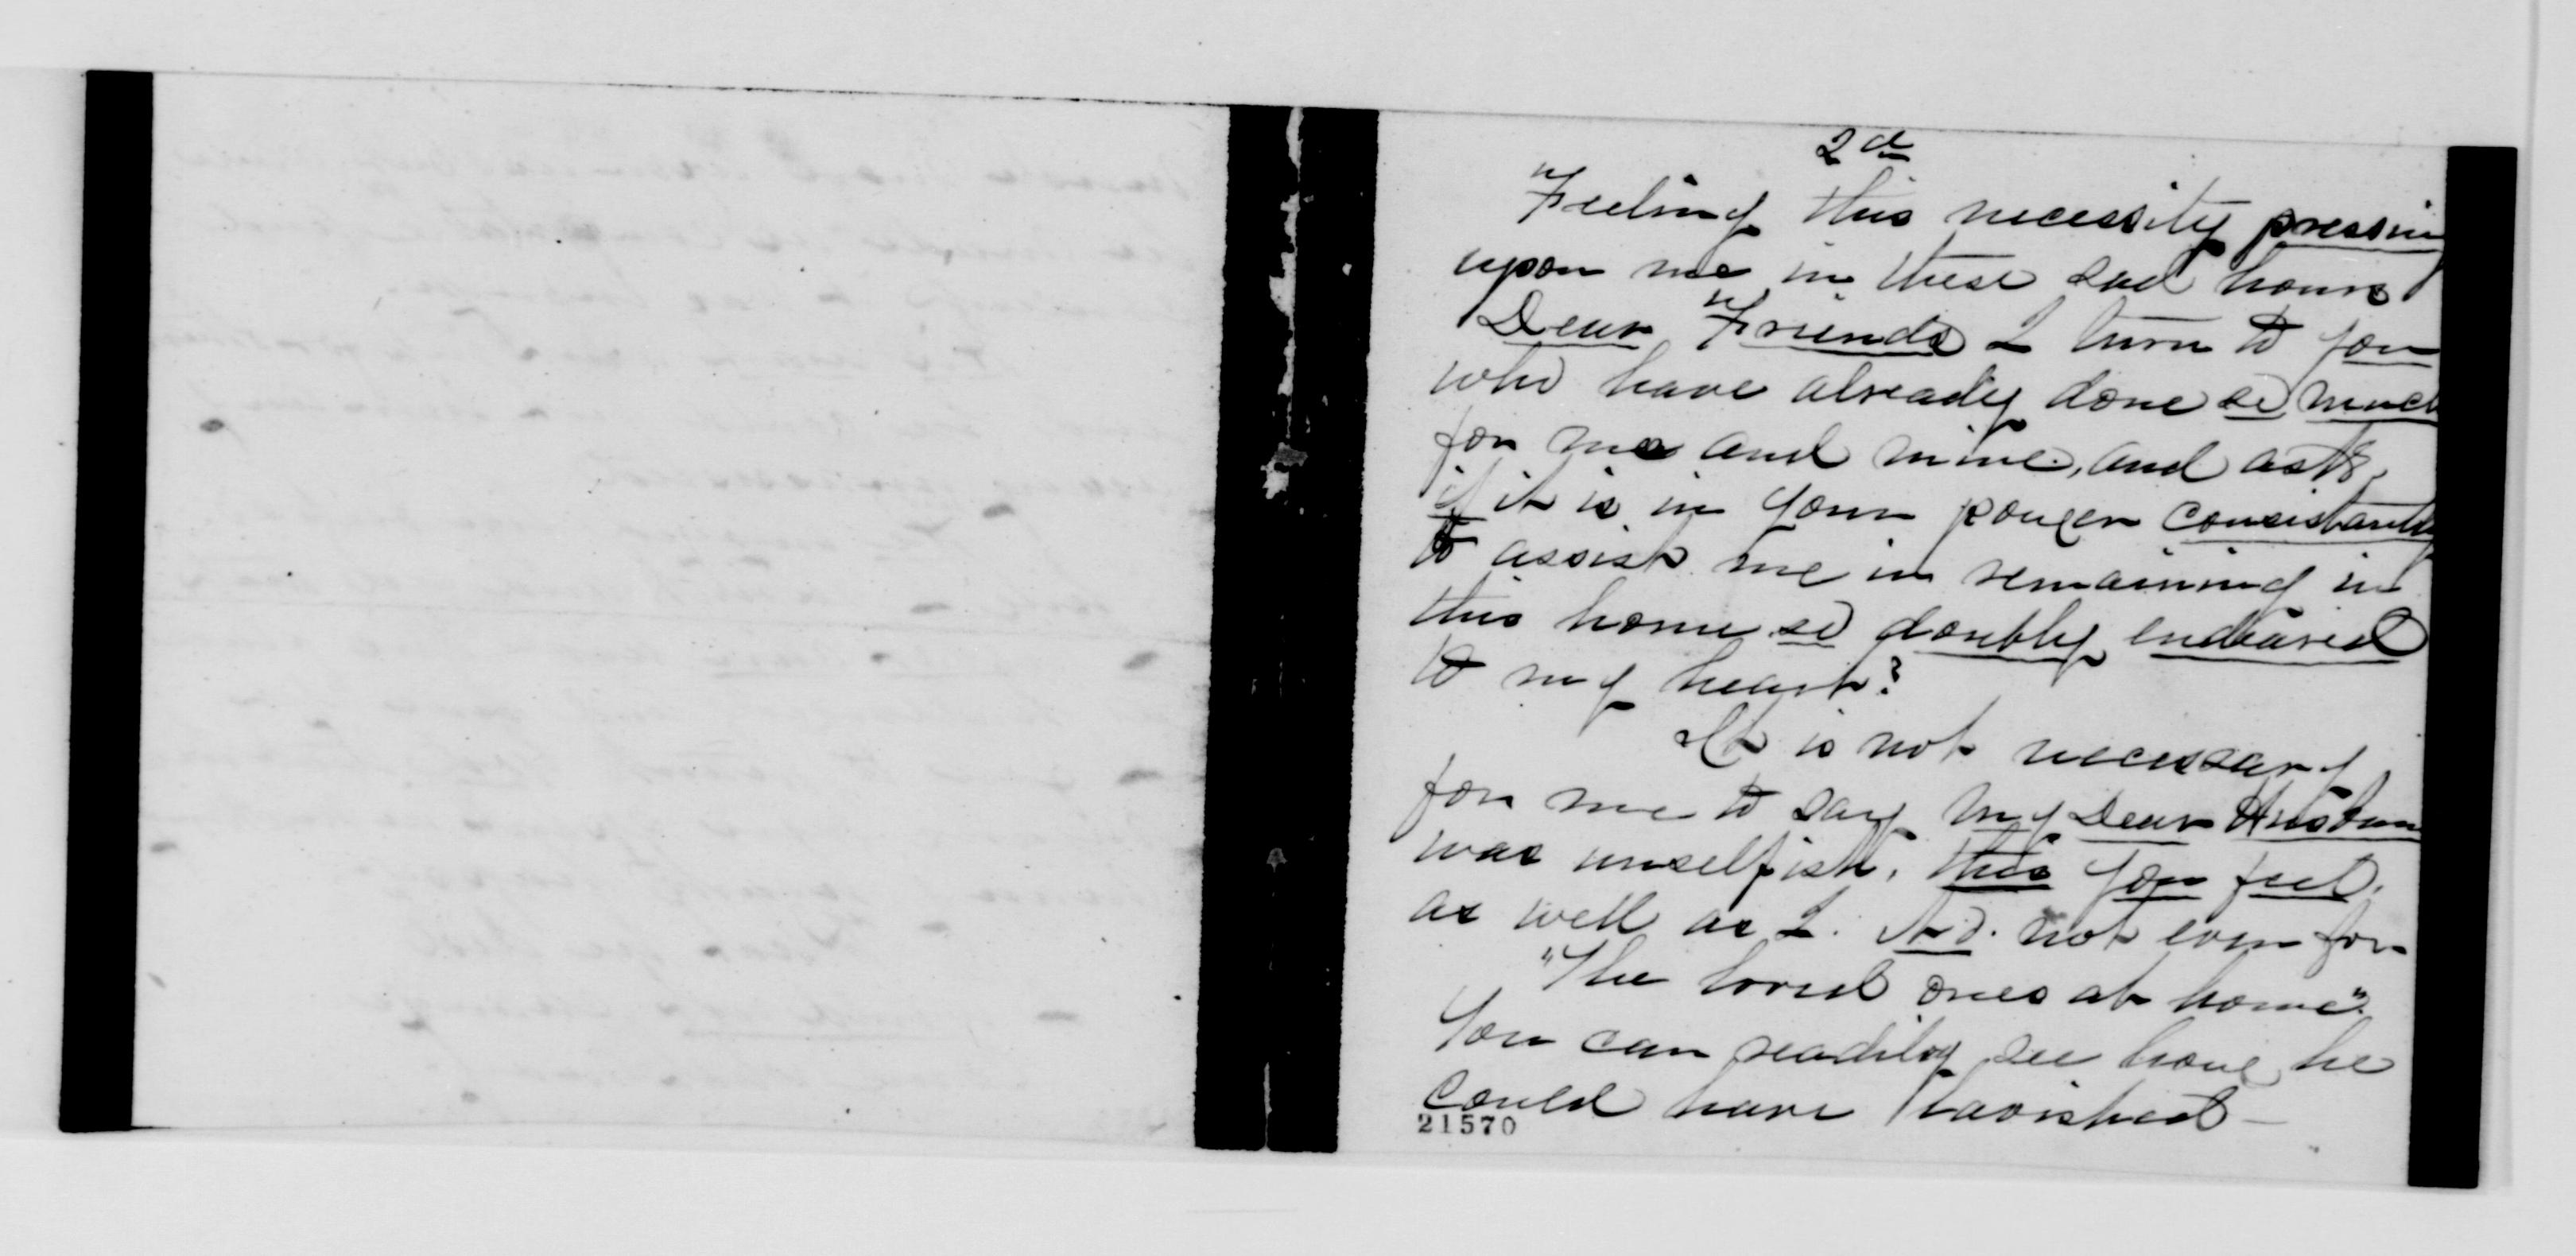 2d
Feeling this necessity pressin
upon me in these sad hours
Dear Friends I turn to you
who have already done so much
for me and mine, and ask,
if it is in your power consistantly
to assist me in remaining in
this home so doubly endeared
to my heart?
It is not necessary
for me to say my Dear Husban
was unselfish, this you feel,
as well as I. No. not even for
"The loved ones at home".
You can readily see how he
could have lavished—
21570